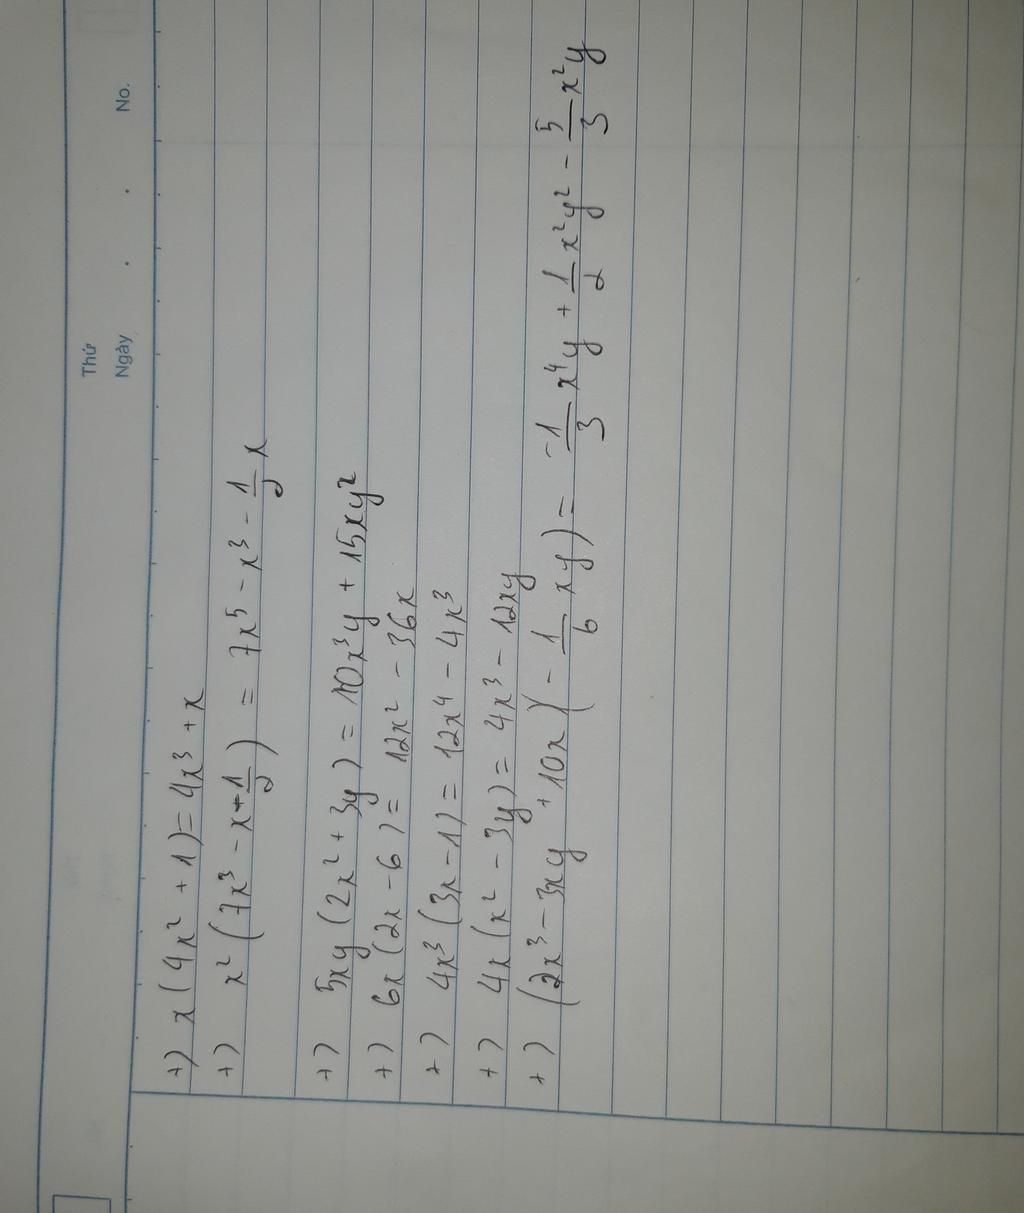 Thứ
Ngày . . No.
+) x(4x² + 1) = 4x³ + x
+) x² (7x³ - x + 1/2) = 7x⁵ - x³ - 1/2 x
+) 5xy (2x² + 3y) = 10x³y + 15xy²
+) 6x (2x - 6) = 12x² - 36x
+) 4x³ (3x - 1) = 12x⁴ - 4x³
+) 4x (x² - 3y) = 4x³ - 12xy
+) (2x³ - 3xy + 10x)(- 1/6 xy) = -1/3 x⁴y + 1/2 x²y² - 5/3 x²y